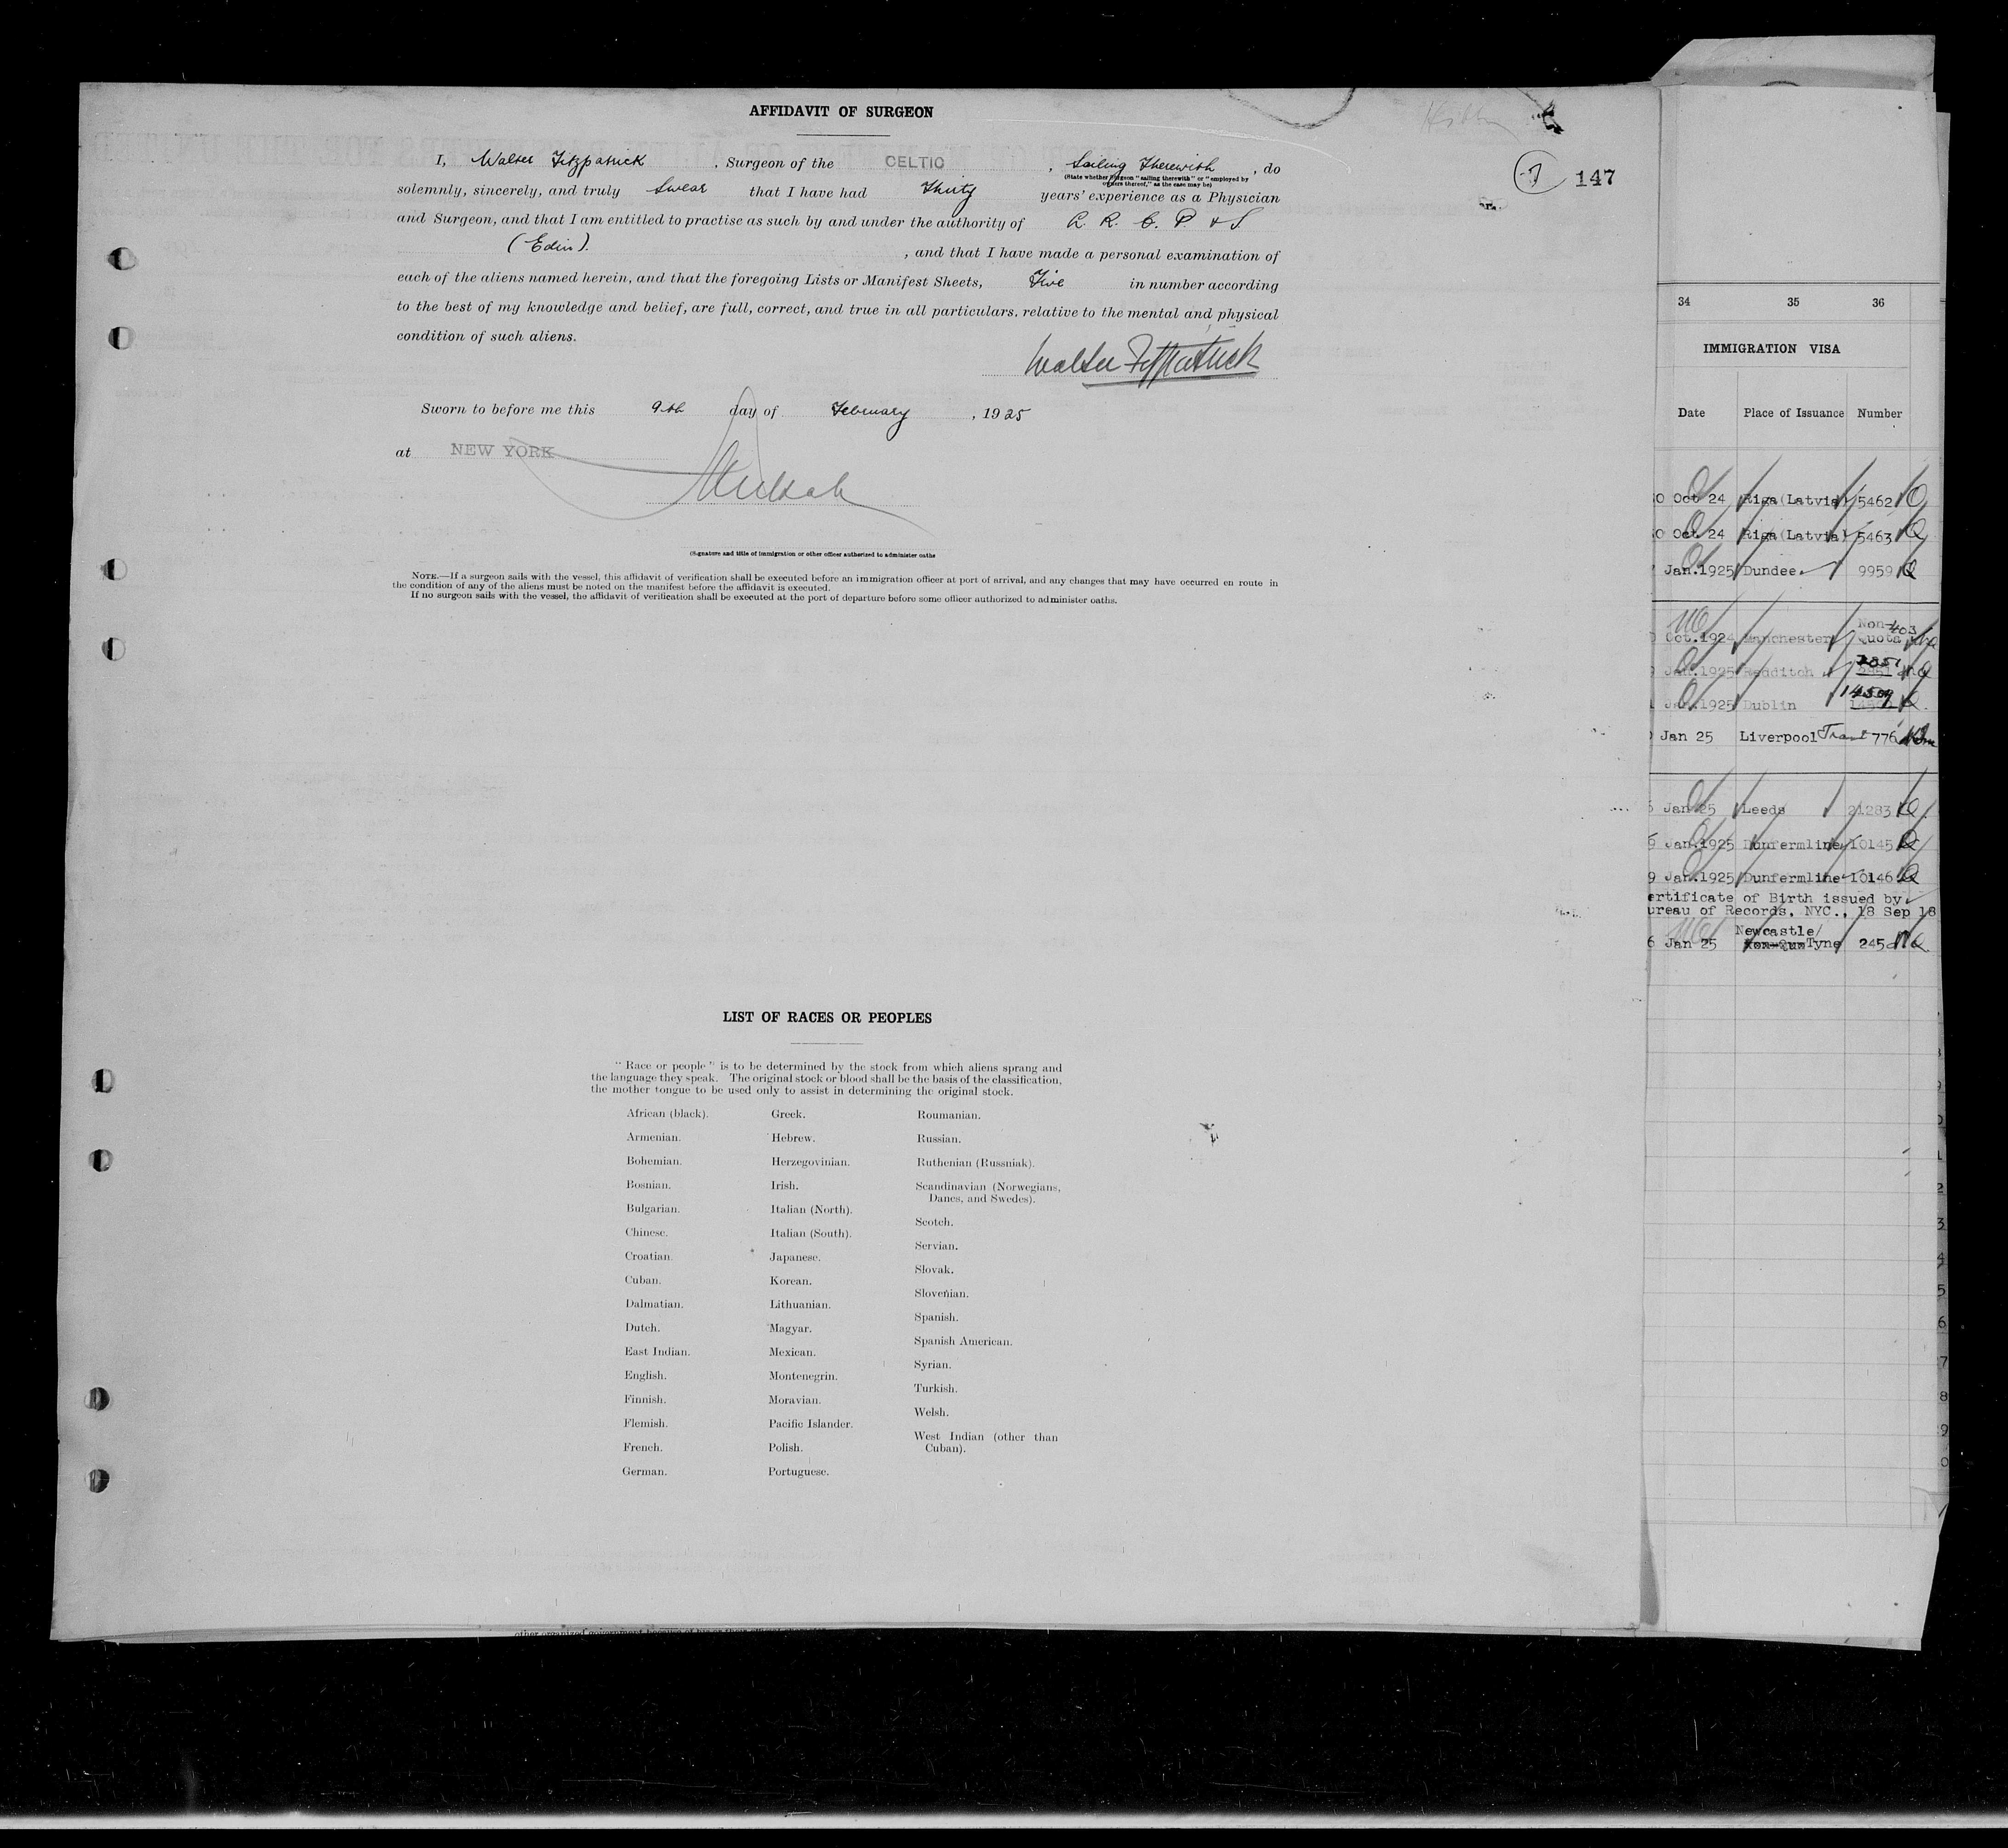 AFFIDAVIT OF SURGEON
I, Walter Fitzpatrick, Surgeon of the CELTIC, Sailing Therewith, do
(State whether Surgeon "sailing therewith" or "employed by
owners thereof," as the case may be)
solemnly, sincerely, and truly Swear that I have had Thirty years' experience as a Physician
and Surgeon, and that I am entitled to practise as such by and under the authority of L. R. C. P. & S
(Edin). , and that I have made a personal examination of
each of the aliens named herein, and that the foregoing Lists or Manifest Sheets, Five in number according
to the best of my knowledge and belief, are full, correct, and true in all particulars, relative to the mental and physical
condition of such aliens.
Walter Fitzpatrick
Sworn to before me this 9th day of February, 1925
at NEW YORK
(Signature and title of immigration or other officer authorized to administer oaths
NOTE.—If a surgeon sails with the vessel, this affidavit of verification shall be executed before an immigration officer at port of arrival, and any changes that may have occurred en route in
the condition of any of the aliens must be noted on the manifest before the affidavit is executed.
If no surgeon sails with the vessel, the affidavit of verification shall be executed at the port of departure before some officer authorized to administer oaths.
147
LIST OF RACES OR PEOPLES
"Race or people" is to be determined by the stock from which aliens sprang and
the language they speak. The original stock or blood shall be the basis of the classification,
the mother tongue to be used only to assist in determining the original stock.
African (black).
Armenian.
Bohemian.
Bosnian.
Bulgarian.
Chinese.
Croatian.
Cuban.
Dalmatian.
Dutch.
East Indian.
English.
Finnish.
Flemish.
French.
German.
Greek.
Hebrew.
Herzegovinian.
Irish.
Italian (North).
Italian (South).
Japanese.
Korean.
Lithuanian.
Magyar.
Mexican.
Montenegrin.
Moravian.
Pacific Islander.
Polish.
Portuguese.
Roumanian.
Russian.
Ruthenian (Russniak).
Scandinavian (Norwegians,
Danes, and Swedes).
Scotch.
Servian.
Slovak.
Slovenian.
Spanish.
Spanish American.
Syrian.
Turkish.
Welsh.
West Indian (other than
Cuban).
34 35 36
IMMIGRATION VISA
Date Place of Issuance Number
0 Oct 24 Riga(Latvia) 5462 Q
0 Oct 24 Riga(Latvia) 5463 Q
Jan.1925 Dundee 9959 Q
Non-403
Oct.1924 Manchester Quota
9 Jan.1925 Redditch
Jan.1925 Dublin 14509 Q
Jan 25 Liverpool 776
6 Jan 25 Leeds 21283 Q
Jan.1925 Dunfermline 10145 Q
9 Jan.1925 Dunfermline 10146 Q
ertificate of Birth issued by
ureau of Records, NYC., 18 Sep 18
Newcastle/
6 Jan 25 Tyne 245